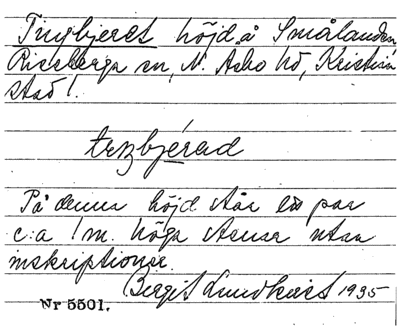 Tingbjeret höjd å Smålanden
Riseberga sn, N. Åsbo hd, Kristian
stad l.
På denna höjd står ett par
c:a 1 m. höga stenar utan
inskriptioner.
Birgit Lundkvist 1935
Nr 5501.